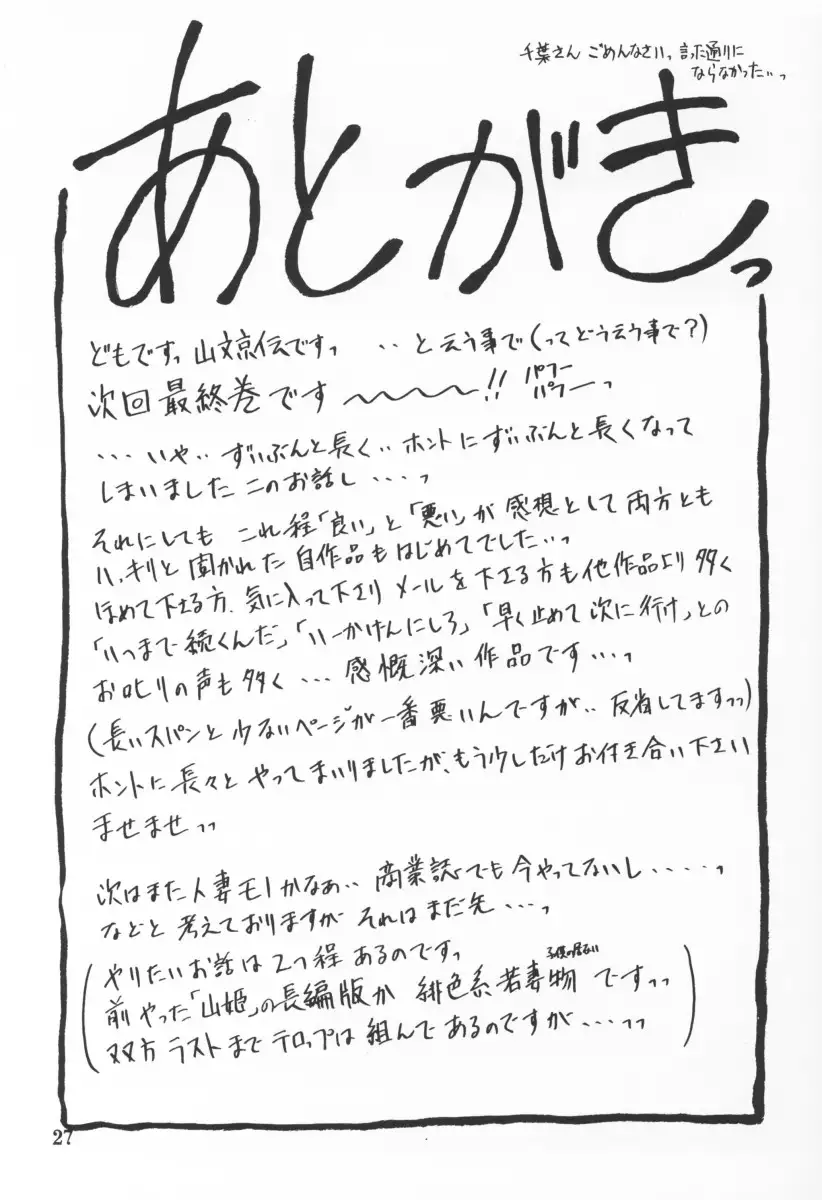 千葉さん ごめんなさいっ 言った通りに
ならなかったいっ
あとがきっ
どもですっ 山文京伝ですっ ‥と云う事で(ってどう云う事で?)
次回最終巻です〜〜〜〜!! パフー
パフーっ
...いや‥ずいぶんと長く‥ホントにずいぶんと長くなって
しまいましたこのお話し...っ
それにしても これ程「良い」と「悪い」が感想として両方とも
ハッキリと聞かれた自作品もはじめてでした...っ
ほめて下さる方、気に入って下さり メールを下さる方も他作品より多く
「いつまで続くんだ」「いーかげんにしろ」「早く止めて次に行け」との
お叱りの声も多く...感慨深い作品です...っ
(長いスパンと少ないページが一番悪いんですが‥反省してますっっ)
ホントに長々とやってまいりましたが、もう少しだけお付き合い下さい
ませませっっ
次はまた人妻モノかなぁ‥商業誌でも今やってないし....っ
などと考えておりますが それはまだ先...っ
(やりたいお話は2つ程あるのですっ
子供の居ない
前やった「山姫」の長編版か 緋色系若妻物ですっっ
双方ラストまでテロップは組んであるのですが...っっ)
27